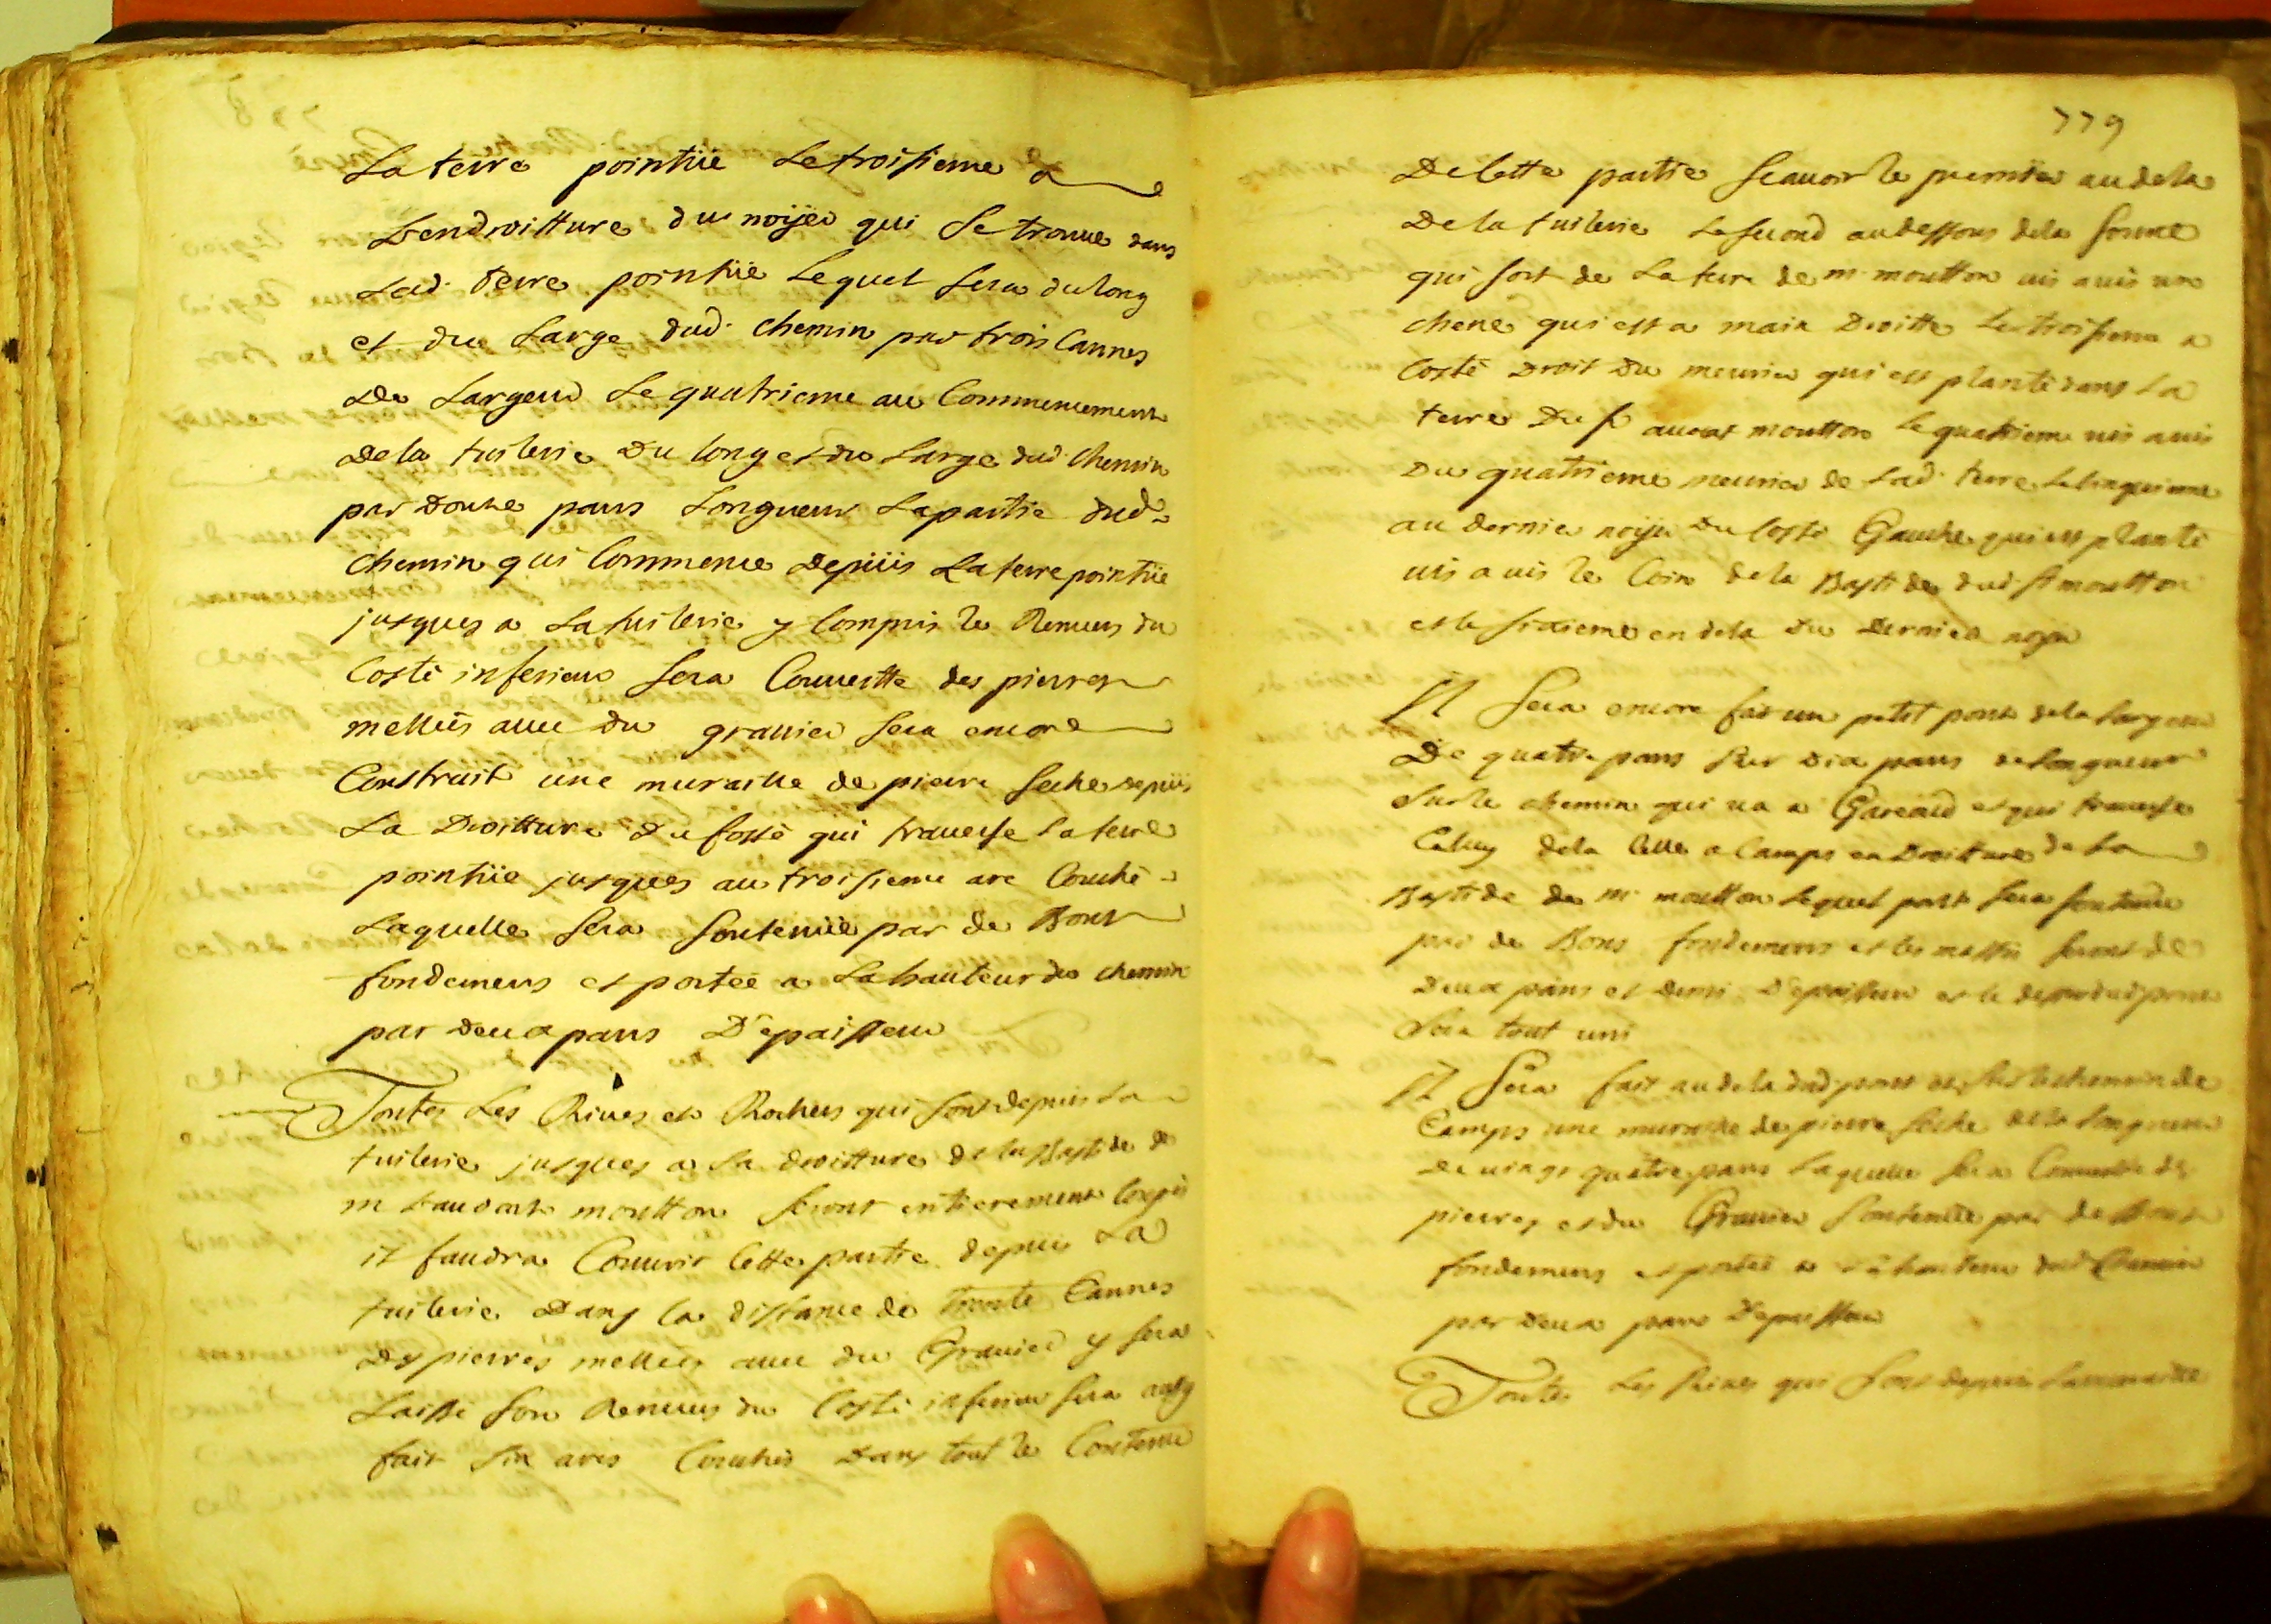 La terre pointüe Le troisieme a
L'endroitture du noÿer qui Se trouue dans
Lad. terre pointüe Lequel Sera du long
et du Large dud. chemin par trois Cannes
De Largeur Le quatrieme au Commencement
De la tuilerie Du long et du Large dud. chemin
par Douze pans Longueur La partie dud.
chemin qui Commence Depüis La terre pointüe
jusques a La tuilerie y Compris le Renuers du
Costé inferieur Sera Couuertte des pierres
mellées auec du grauier Sera encore
Construit une muraille de pierre Seche depüis
La Droitture Du fossé qui trauerse La terre
pointüe jusques au troisieme arc Couché
Laquelle Sera Soutenüe par de Bons
fondemens et portée a La hauteur du chemin
par deux pans D'epaisseur
Toutes Les Riues et Rochers qui Sont depuis La
tuilerie jusques a La droitture de la Bastide de
m moutton Seront entierement
il faudra Couurir Cette partie depuis La
tuilerie Dans la distance de trente Cannes
Des pierres mellées auec du Grauier y Sera
Laissé Son Renuers du Costé inferieur Sera
fait Six arcs Couchés Dans tout le Contenu
779
De Cette partie Scauoir le premier au dela
De la tuilerie Le Second au dessous de la
qui Sort de La terre de mr moutton uis auis un
chene qui est a main Droitte Le troisieme a
Costé Droit Du meurier qui est planté dans La
terre Du Sr auocat moutton Le quatrieme uis auis
Du quatrieme meurier de Lad. terre Le Cinquieme
au dernier noÿer Du Costé Gauche qui est planté
uis a uis le Coin de la Bastide dud. Sr moutton
et le Sixieme en dela Du Dernier noÿer
Il Sera encore fait un petit pont de la Largeur
De quatre pans Sur Dix pans de Longueur
Sur le chemin qui ua a Gareoud et qui trauerse
Celuy de la Celle a Camps en Droitture de La
Bastide de mr moutton Lequel pont Sera Soutenu
par de Bons fondemens et les massifs Seront de
Deux pans et Demi D'epaisseur et le dessus dud. pont
Sera tout uni
Il Sera fait au dela dud. pont et Sur le chemin de
Camps une muraille de pierre Seche de la Longueur
de uingt quatre pans Laquelle Sera Couuertte de
pierres et du Grauier Soutenüe par de Bons
fondemens et portée a La hauteur dud. Chemin
par deux pans D'epaisseur
Toutes Les Riues qui Sont depuis La muraille